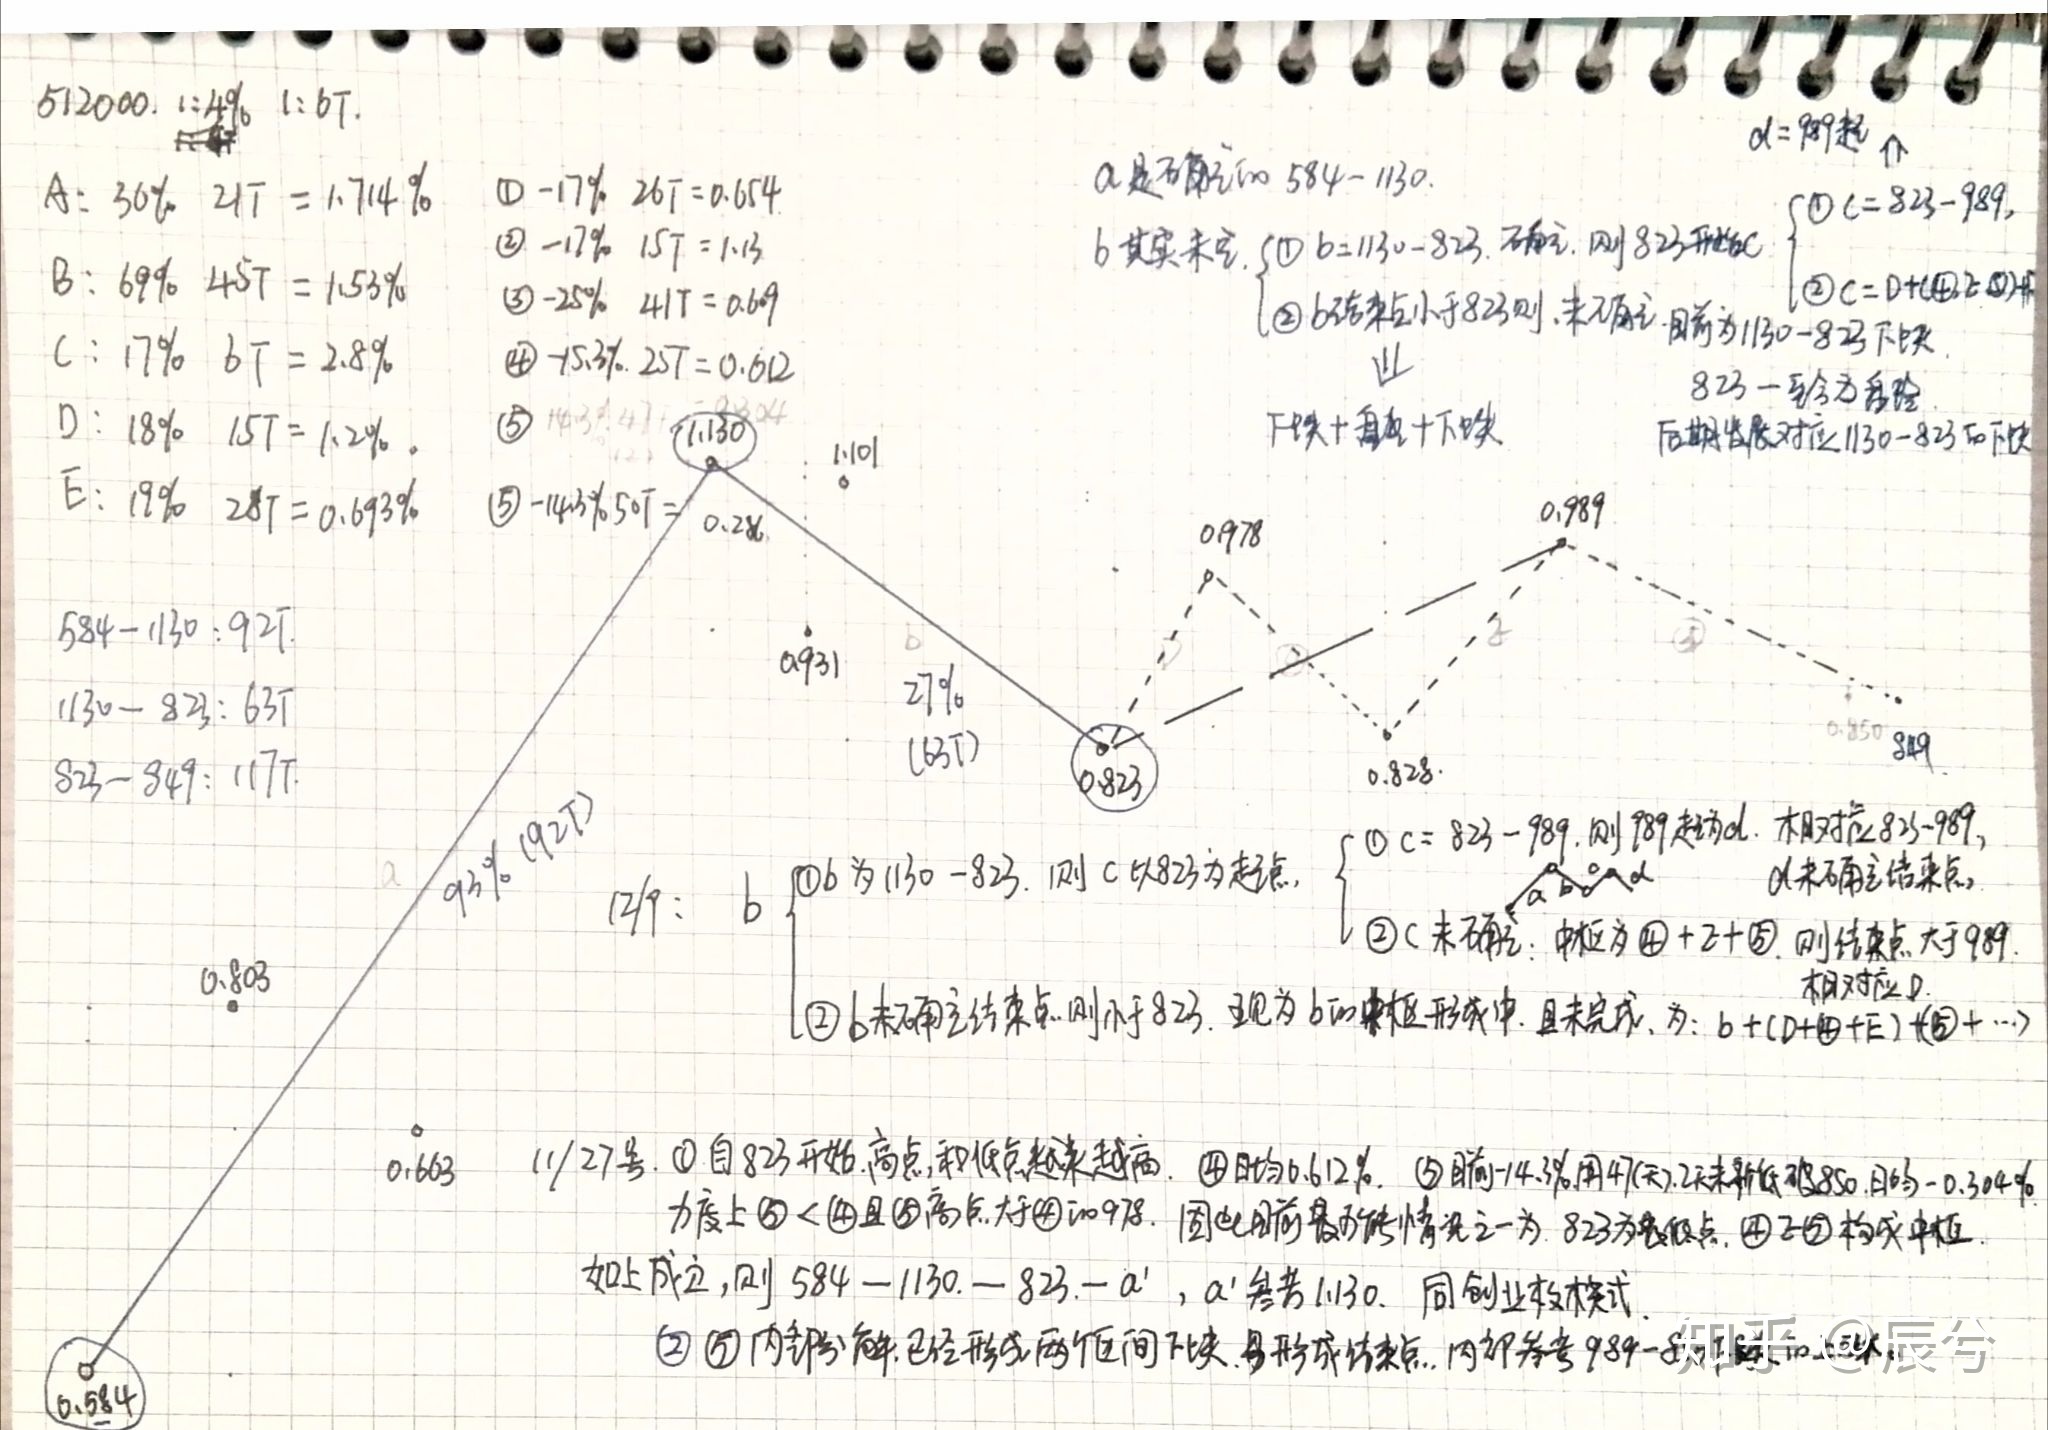 512000. 1:4% 1:6T.
A: 36% 21T = 1.714%
B: 69% 45T = 1.53%
C: 17% 6T = 2.8%
D: 18% 15T = 1.2%.
E: 19% 28T = 0.693%
① -17% 26T = 0.654
② -17% 15T = 1.13
③ -25% 41T = 0.609
④ -15.3% 25T = 0.612
⑤
⑤ -14.3% 50T = 0.286
584-1130: 92T.
1130-823: 63T
823-849: 117T.
a是确定的 584-1130.
b其实未定.
① b=1130-823. 确定. 则823开始C
② b结束点小于823则.未确定.目前为1130-823下跌.
823-至今为盘整
后期发展对应1130-823的下跌
下跌+盘整+下跌
d=989起
① C=823-989,
② C=D+
1.130
1.101
0.931
b
27%
(63T)
0.823
0.978
0.828.
0.989
0.850
849
a
93% (92T)
0.803
0.663
0.584
12/9: b
① b为1130-823. 则C以823为起点,
① C=823-989. 则989起为d. 相对应823-989,
d未确定结束点,
a b c d
② C未确定: 中枢为④+E+⑤. 则结束点大于989.
相对应D.
② b未确定结束点.则小于823. 现为b的中枢形成中.且未完成.为: b+(D+④+E)+(⑤+…)
11/27号. ① 自823开始.高点,和低点越来越高. ④日均0.612%. ⑤目前-14.3%,用47(天).2天未新低破850.日均-0.304%
力度上⑤<④且⑤高点大于④的978. 因此目前最可能情况之一为. 823为最低点. ④E⑤构成中枢.
如上成立,则 584-1130.-823.-a', a'参考1.130. 同创业板模式.
② ⑤内部分解.已经形成两个区间下跌.
知乎 @辰兮